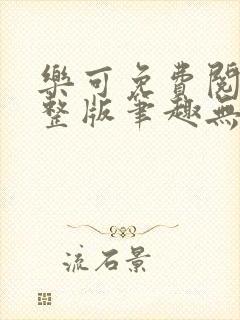 樂可免費閱
整版筆趣無
流石景